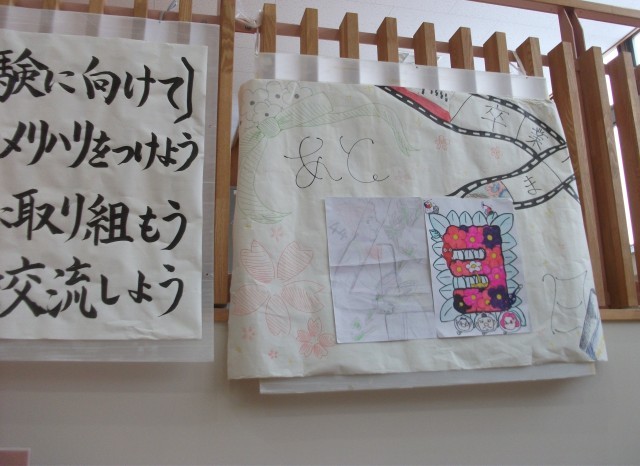 験に向けて
メリハリをつけよう
取り組もう
交流しよう
卒業
ま
あと
日